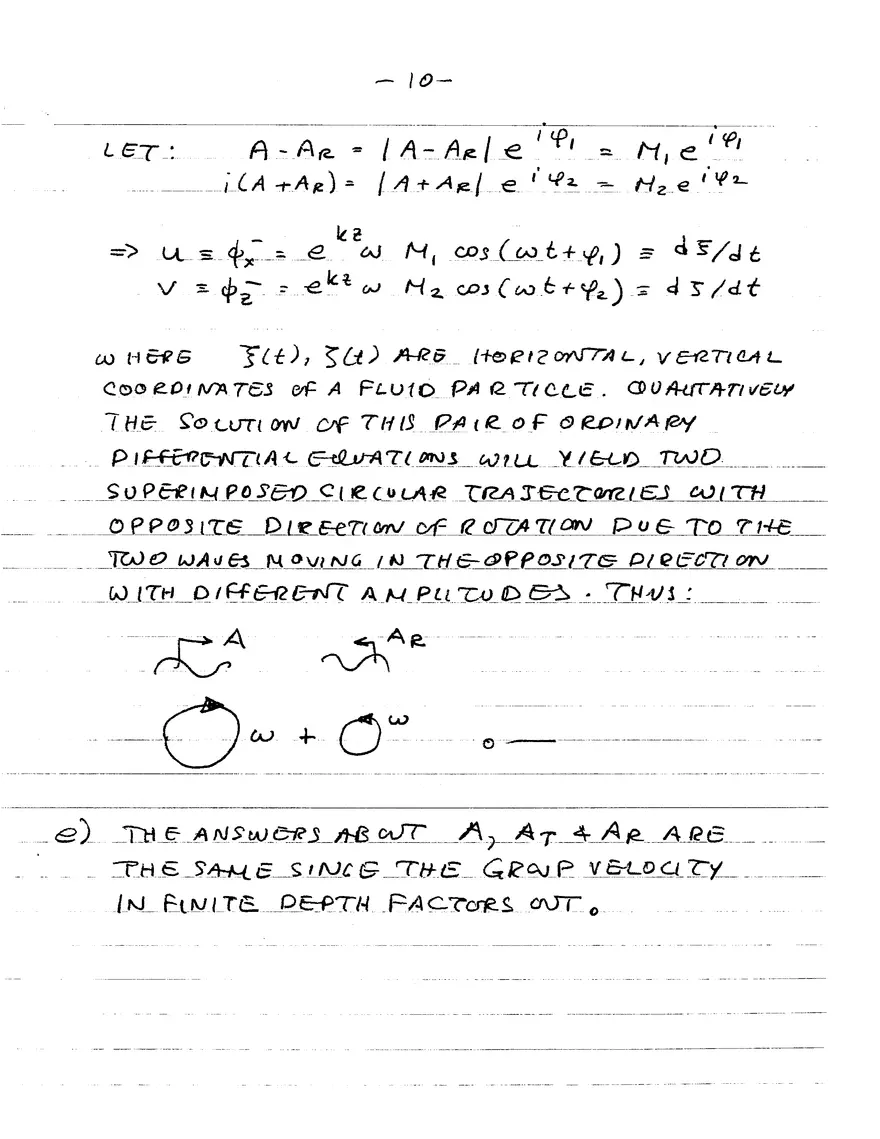 — 10 —
LET: A - A_R = |A - A_R| e^{iφ₁} = M₁ e^{iφ₁}
i(A + A_R) = |A + A_R| e^{iφ₂} = M₂ e^{iφ₂}
=> u ≡ φ_x^- = e^{kz} ω M₁ cos(ωt + φ₁) ≡ dξ/dt
v ≡ φ_z^- = e^{kz} ω M₂ cos(ωt + φ₂) = dζ/dt
WHERE ξ(t), ζ(t) ARE HORIZONTAL, VERTICAL
COORDINATES OF A FLUID PARTICLE. QUALITATIVELY
THE SOLUTION OF THIS PAIR OF ORDINARY
DIFFERENTIAL EQUATIONS WILL YIELD TWO
SUPERIMPOSED CIRCULAR TRAJECTORIES WITH
OPPOSITE DIRECTION OF ROTATION DUE TO THE
TWO WAVES MOVING IN THE OPPOSITE DIRECTION
WITH DIFFERENT AMPLITUDES. THUS:
A A_R
ω + ω
e) THE ANSWERS ABOUT A, A_T & A_R ARE
THE SAME SINCE THE GROUP VELOCITY
IN FINITE DEPTH FACTORS OUT.